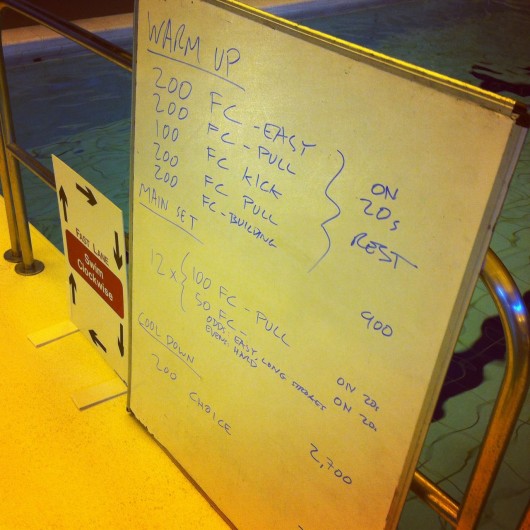 WARM UP
200 FC - EASY
200 FC - PULL
100 FC KICK
200 FC PULL
200 FC - BUILDING
ON
20s
REST
900
MAIN SET
12 x 100 FC - PULL ON 20s
50 FC - ON 20s
ODDS - EASY LONG STROKES
EVENS - HARD
2,700
COOL DOWN
200 CHOICE
FAST LANE
Swim
Clockwise